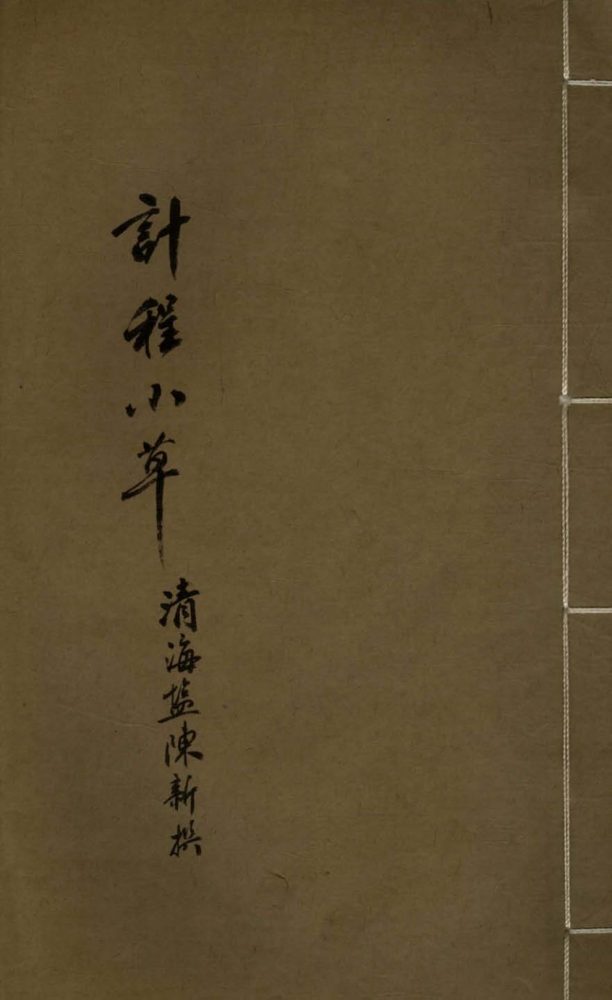 計程小草
清海盐陳新撰